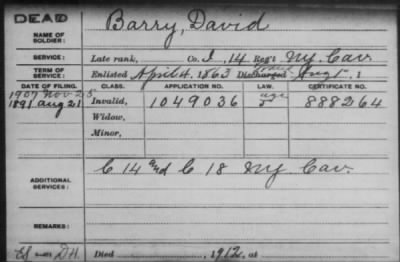 DEAD
Barry, David
NAME OF SOLDIER:
SERVICE: Late rank, Co. I, 14 Reg't NY. Cav.
TERM OF SERVICE: Enlisted April 4, 1863 Discharged Aug 1
DATE OF FILING. CLASS. APPLICATION NO. LAW. CERTIFICATE NO.
1907 Nov 25
1891 Aug 21 Invalid, 1049036 888264
Widow,
Minor,
ADDITIONAL SERVICES: C 14 and C 18 NY Cav.
REMARKS:
Died 1912, at